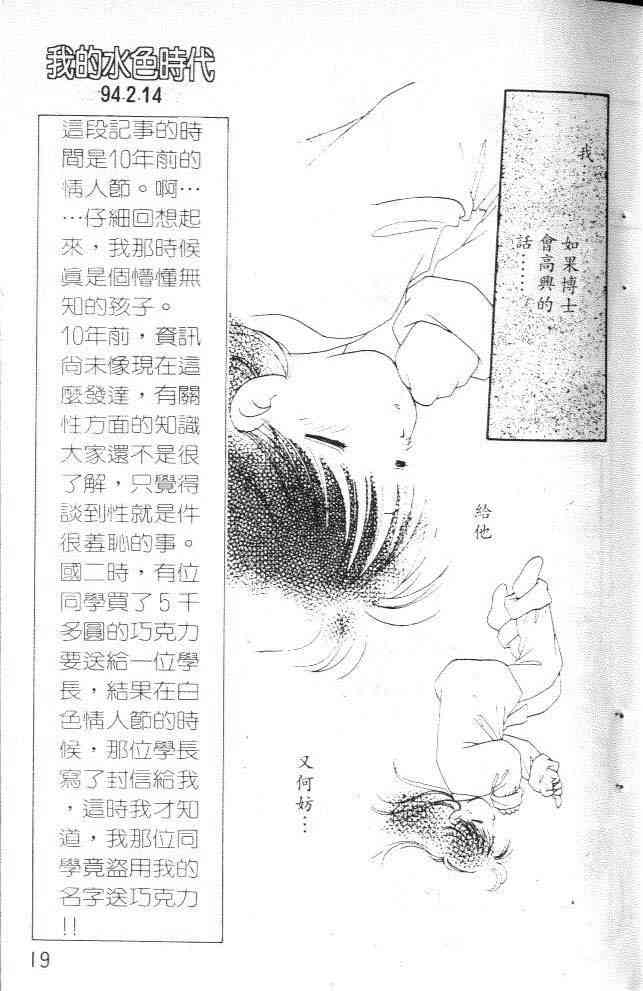 我的水色時代
94.2.14
這段記事的時
間是10年前的
情人節。啊…
…仔細回想起
來,我那時候
真是個懵懂無
知的孩子。
10年前,資訊
尚未像現在這
麼發達,有關
性方面的知識
大家還不是很
了解,只覺得
談到性就是件
很羞恥的事。
國二時,有位
同學買了5千
多圓的巧克力
要送給一位學
長,結果在白
色情人節的時
候,那位學長
寫了封信給我
,這時我才知
道,我那位同
學竟盜用我的
名字送巧克力
!!
我…
如果博士
會高興的
話……
給他
又何妨…
19